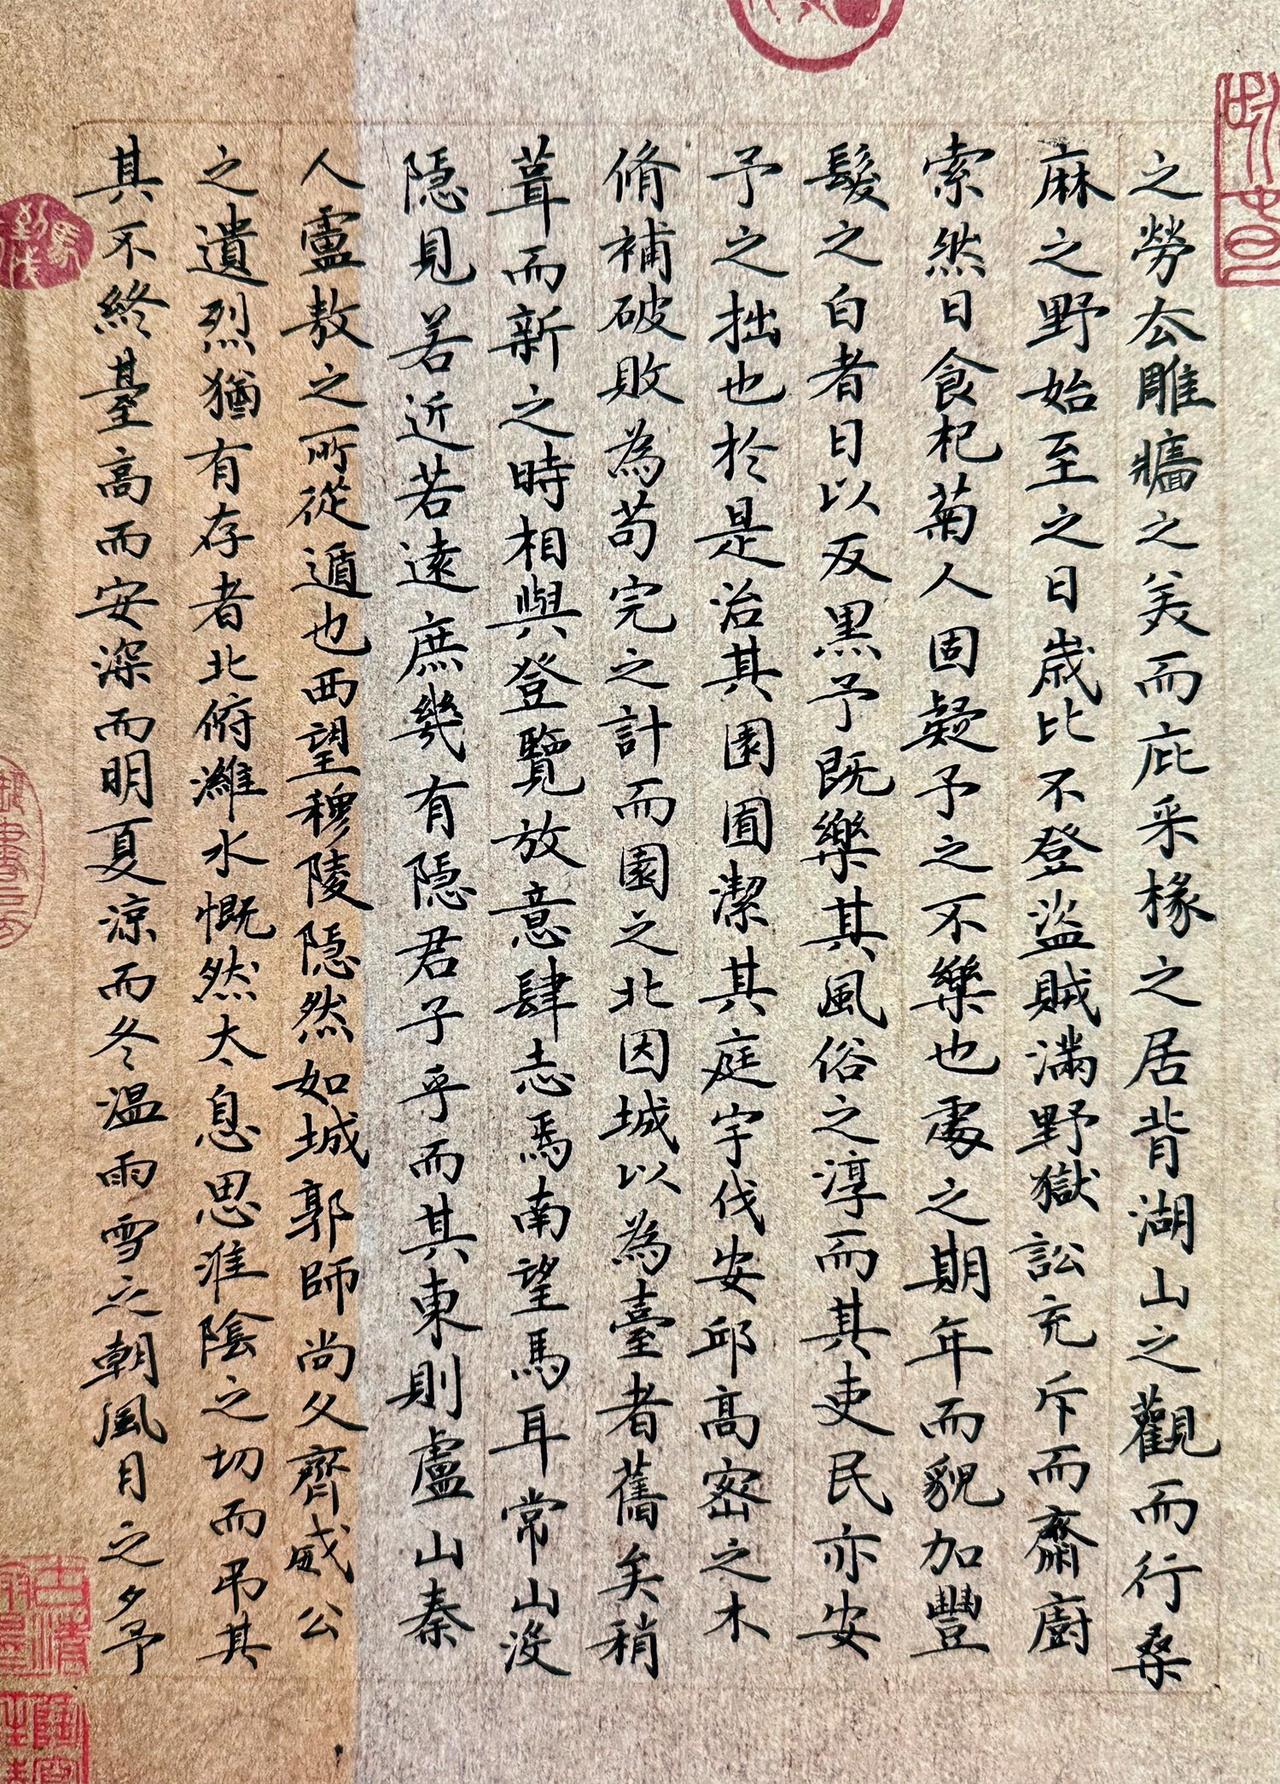 之勞去雕牆之美而庇采椽之居背湖山之觀而行桑
麻之野始至之日歲比不登盜賊滿野獄訟充斥而齋廚
索然日食杞菊人固疑予之不樂也處之期年而貌加豐
髮之白者日以反黑予既樂其風俗之淳而其吏民亦安
予之拙也於是治其園囿潔其庭宇伐安邱高密之木
脩補破敗為苟完之計而園之北因城以為臺者舊矣稍
葺而新之時相與登覽放意肆志焉南望馬耳常山沒
隱見若近若遠庶幾有隱君子乎而其東則盧山秦
人盧敖之所從遁也西望穆陵隱然如城郭師尚父齊威公
之遺烈猶有存者北俯濰水慨然太息思淮陰之切而弔其
其不終臺高而安深而明夏涼而冬溫雨雪之朝風月之夕予